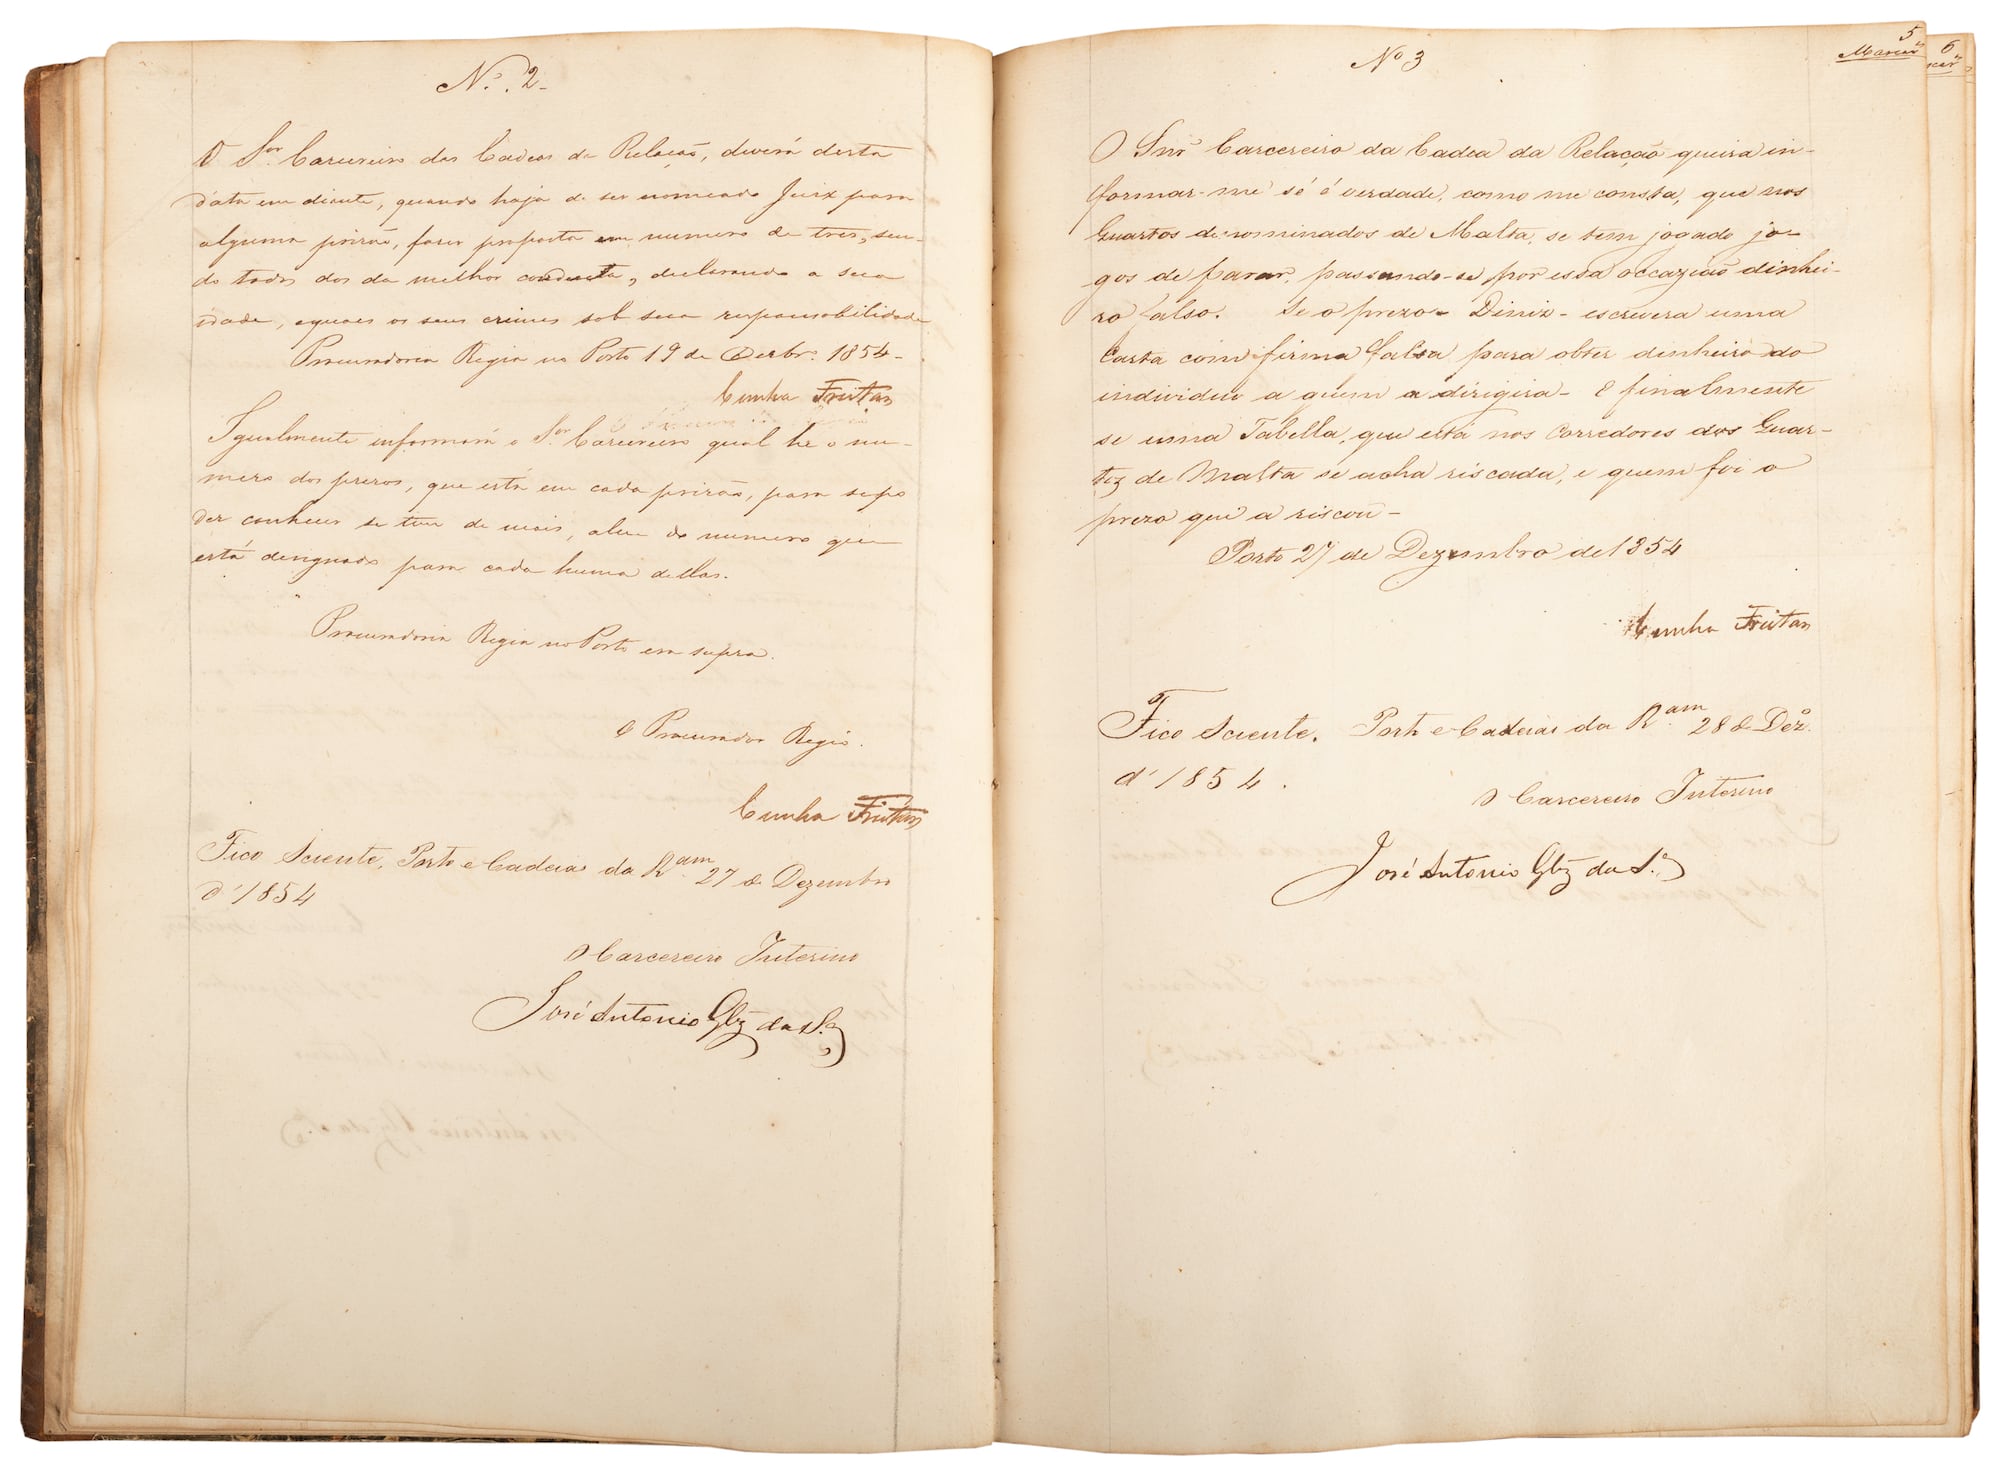 Nº. 2
O Sor. Carcereiro das Cadeas da Relação, deverá desta
data em diante, quando haja de ser nomeado Juiz para
alguma prizão, fazer proposta em numero de tres, sen-
do todos dos da melhor conducta, declarando a sua
idade, e quaes os seus crimes sob sua responsabilidade
Procuradoria Regia no Porto 19 de Dezbrº. 1854-
Cunha Freitas
Igualmente informará o Sor. Carcereiro qual he o nu-
mero dos prezos, que está em cada prizão, para se po
der conhecer se tem de mais, alem do numero que
está designado para cada huma dellas.
Procuradoria Regia no Porto era supra.
O Procurador Regio.
Cunha Freitas
Fico Sciente, Porto e Cadeias da Ram 27 de Dezembro
d'1854
O Carcereiro Interino
José Antonio Glz da Sª
5
6
Nº 3
O Snr Carcereiro da Cadea da Relação queira in-
formar-me sé é verdade, como me consta, que nos
Quartos denominados de Malta, se tem jogado jo-
gos de parar, passando-se por essa occazião dinhei-
ro falso. Se o prezo- Diniz- escrevera uma
Carta com firma falsa para obter dinheiro do
individuo a quem a dirigira- E finalmente
se uma Tabella, que está nos Corredores dos Quar-
tez de Malta se acha riscada, e quem foi o
prezo que a riscou-
Porto 27 de Dezembro de 1854
Cunha Freitas
Fico Sciente. Porto e Cadeias da Ram 28 de Dezº.
d'1854.
O Carcereiro Interino
José Antonio Glz da Sª